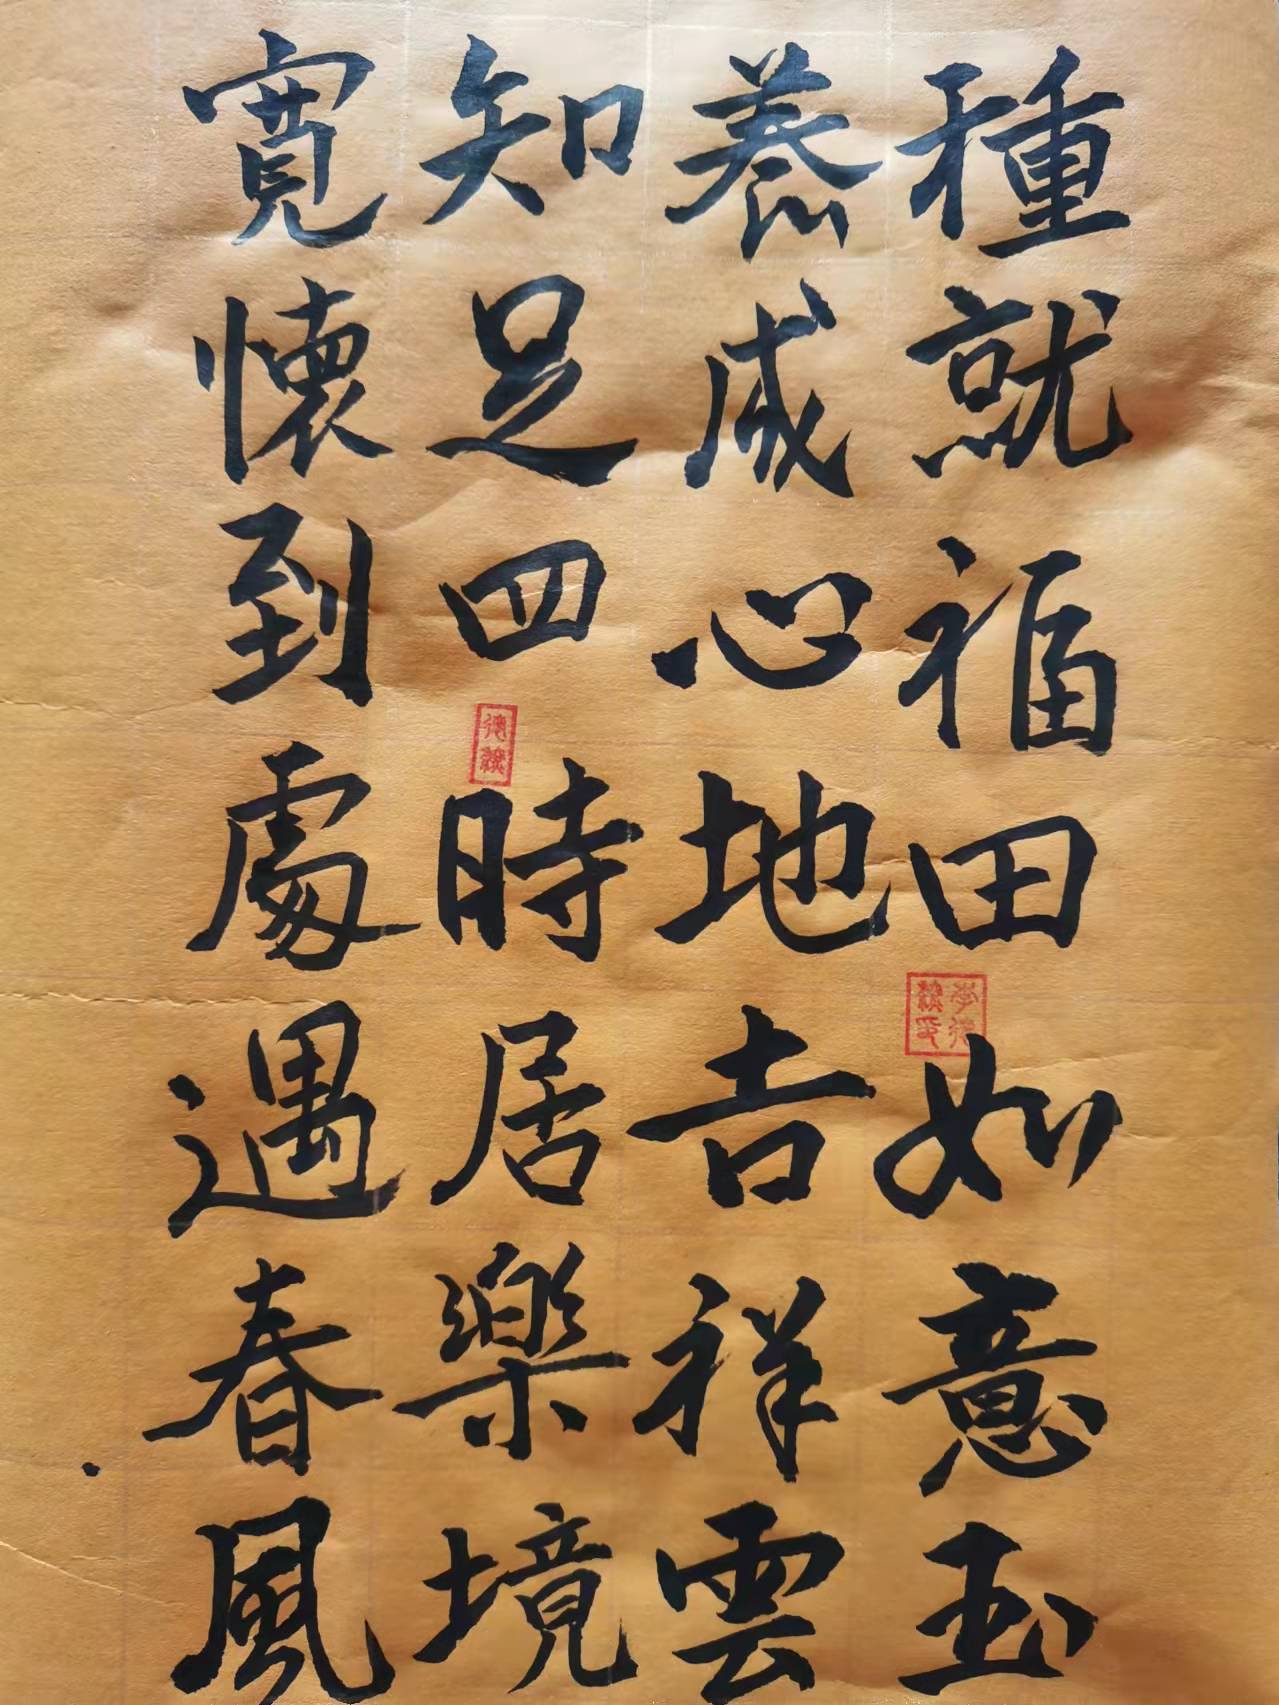 種就福田如意玉
養成心地吉祥雲
知足四時居樂境
寬懷到處遇春風